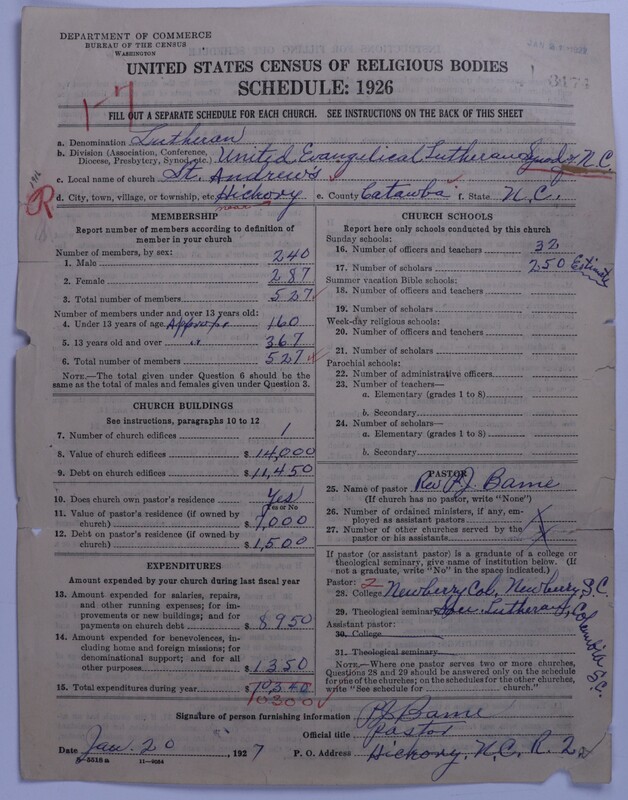 DEPARTMENT OF COMMERCE
BUREAU OF THE CENSUS
WASHINGTON
UNITED STATES CENSUS OF RELIGIOUS BODIES
SCHEDULE: 1926
1-7
FILL OUT A SEPARATE SCHEDULE FOR EACH CHURCH. SEE INSTRUCTIONS ON THE BACK OF THIS SHEET
a. Denomination Lutheran
b. Division (Association, Conference, Diocese, Presbytery, Synod, etc.) United Evangelical Lutheran Synod of N.C.
c. Local name of church St. Andrew's
d. City, town, village, or township, etc. Hickory e. County Catawba f. State N.C.
near
R
MEMBERSHIP
Report number of members according to definition of
member in your church
Number of members, by sex:
1. Male 240
2. Female 287
3. Total number of members 527
Number of members under and over 13 years old:
4. Under 13 years of age Approx 160
5. 13 years old and over " 367
6. Total number of members 527
NOTE.—The total given under Question 6 should be the
same as the total of males and females given under Question 3.
CHURCH BUILDINGS
See instructions, paragraphs 10 to 12
7. Number of church edifices 1
8. Value of church edifices $ 14,000
9. Debt on church edifices $ 11,450
10. Does church own pastor's residence Yes
Yes or No
11. Value of pastor's residence (if owned by
church) $ 7,000
12. Debt on pastor's residence (if owned by
church) $ 1,500
EXPENDITURES
Amount expended by your church during last fiscal year
13. Amount expended for salaries, repairs,
and other running expenses; for im-
provements or new buildings; and for
payments on church debt $ 8950
14. Amount expended for benevolences, in-
cluding home and foreign missions; for
denominational support; and for all
other purposes $ 1350
15. Total expenditures during year $
10300
CHURCH SCHOOLS
Report here only schools conducted by this church
Sunday schools:
16. Number of officers and teachers 32
17. Number of scholars 250 Estimate
Summer vacation Bible schools:
18. Number of officers and teachers
19. Number of scholars
Week-day religious schools:
20. Number of officers and teachers
21. Number of scholars
Parochial schools:
22. Number of administrative officers
23. Number of teachers—
a. Elementary (grades 1 to 8)
b. Secondary
24. Number of scholars—
a. Elementary (grades 1 to 8)
b. Secondary
PASTOR
25. Name of pastor Rev. P.J. Bame
(If church has no pastor, write "None")
26. Number of ordained ministers, if any, em-
ployed as assistant pastors
27. Number of other churches served by the
pastor or his assistants X
If pastor (or assistant pastor) is a graduate of a college or
theological seminary, give name of institution below. (If
not a graduate, write "No" in the space indicated.)
Pastor: 2
28. College Newberry Col., Newberry, S.C.
29. Theological seminary Sou. Lutheran, Columbia S.C.
Assistant pastor:
30. College
31. Theological seminary
NOTE.—Where one pastor serves two or more churches,
Questions 28 and 29 should be answered only on the schedule
for one of the churches; on the schedules for the other churches,
write "See schedule for church."
Signature of person furnishing information P.J. Bame
Official title Pastor
Date Jan. 20, 1927 P. O. Address Hickory, N.C. R. 2
8-5518a 11-9054